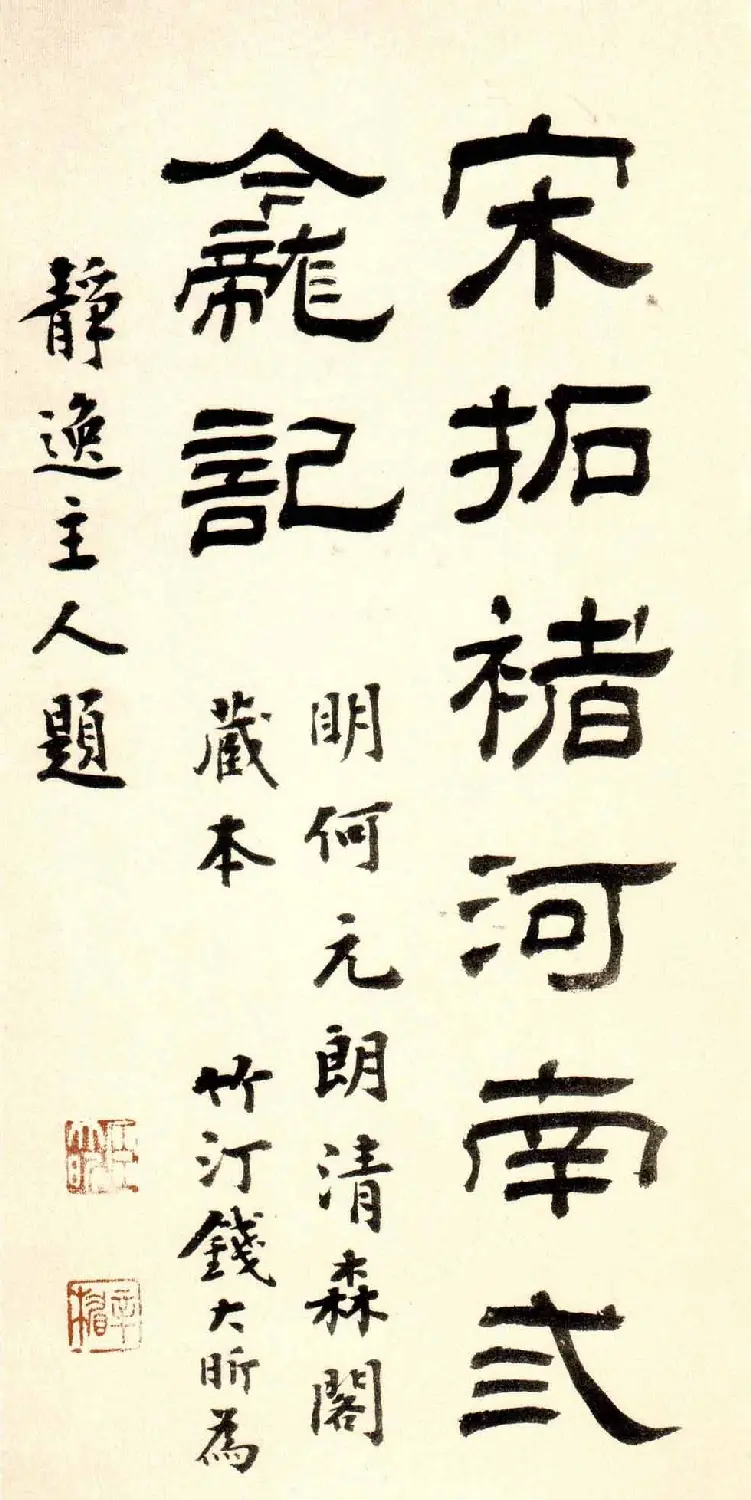 宋拓褚河南弎
龕記
明何元朗清森閣
藏本 竹汀錢大昕為
靜逸主人題